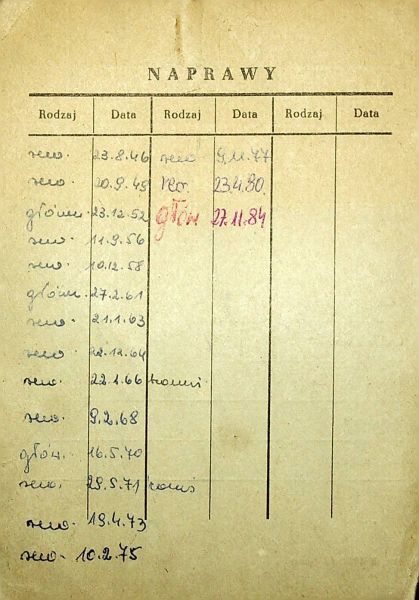 NAPRAWY
Rodzaj Data Rodzaj Data Rodzaj Data
rew. 23.8.46 rew 9.11.77
rew. 20.9.49 rew. 23.4.80
główn. 23.12.52 głów 27.11.84
rew. 11.9.56
rew. 10.12.58
główn. 27.2.61
rew. 21.1.63
rew. 22.12.64
rew. 22.1.66
rew. 9.2.68
głów. 16.5.70
rew. 29.5.71
rew. 19.4.73
rew. 10.2.75